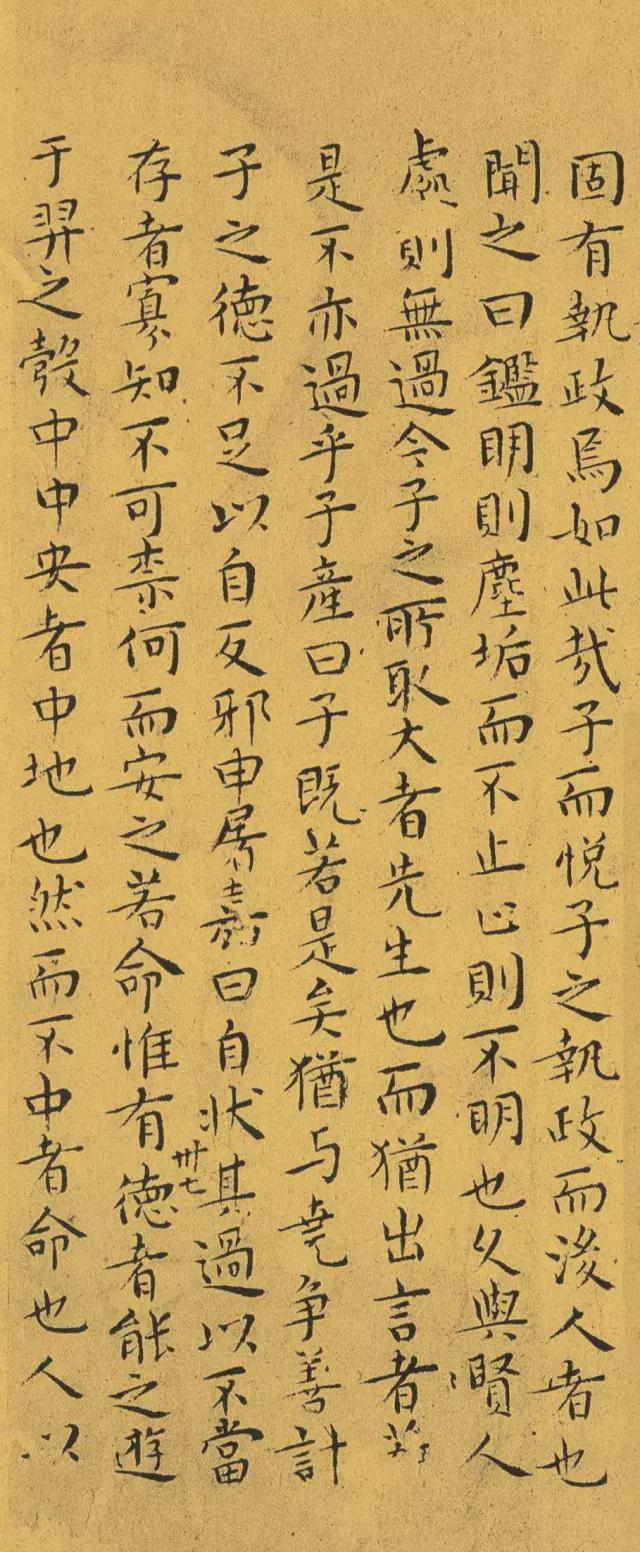 固有執政焉如此哉子而悅子之執政而後人者也
聞之曰鑑明則塵垢而不止止則不明也久與賢人
處則無過今子之所取大者先生也而猶出言者若
是不亦過乎子產曰子既若是矣猶与堯争善計
子之德不足以自反邪申屠嘉曰自状其過以不當
卅七
存者寡知不可柰何而安之若命惟有德者能之遊
于羿之彀中中央者中地也然而不中者命也人以